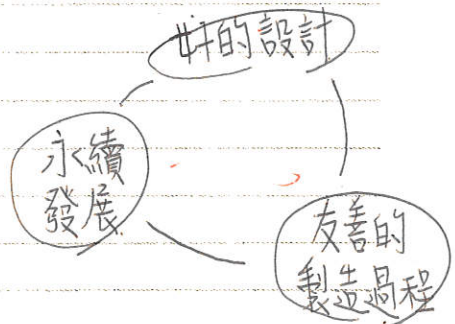 好的設計
永續
發展
友善的
製造過程